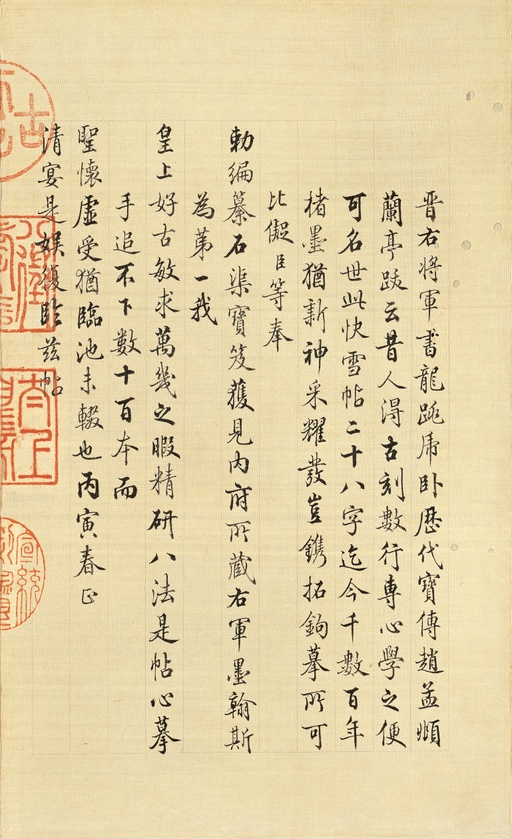 晉右將軍書龍跳虎卧歷代寶傳趙孟頫
蘭亭跋云昔人得古刻數行專心學之便
可名世此快雪帖二十八字迄今千數百年
楮墨猶新神采耀發豈鐫拓鉤摹所可
比儗臣等奉
勅編纂石渠寶笈獲見内府所藏右軍墨翰斯
為第一我
皇上好古敏求萬幾之暇精研八法是帖心摹
手追不下數十百本而
聖懷虛受猶臨池未輟也丙寅春正
清宴是娛復臨茲帖
宣統